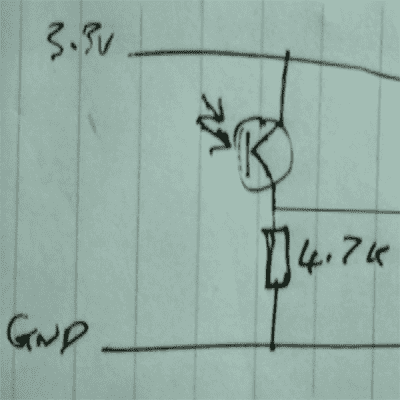 3.3v
4.7k
GND